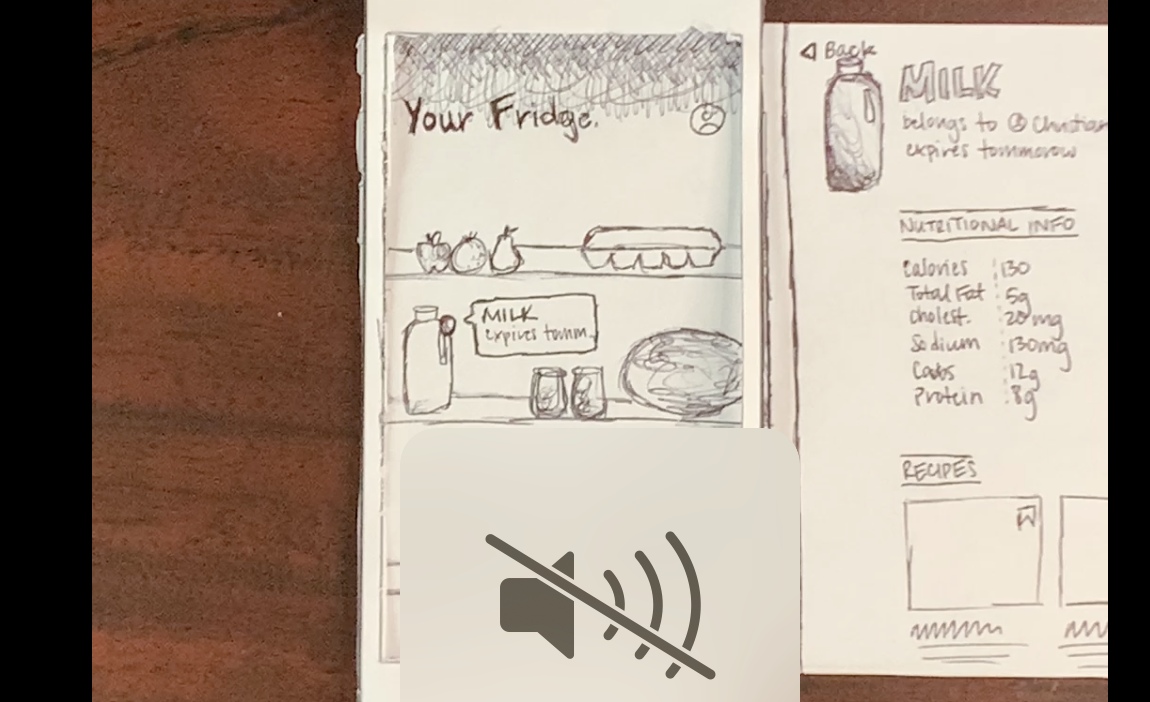 Your Fridge.
MILK
expires tomm.
Back
MILK
belongs to Christian
expires tommorow
NUTRITIONAL INFO
Calories 130
Total Fat 5g
cholest. 20mg
Sodium 130mg
Carbs 12g
Protein 8g
RECIPES